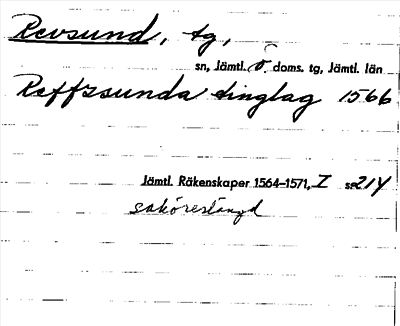 Revsund, tg,
sn, Jämtl. ö. doms. tg, Jämtl. län
Reffzsunda tinglag 1566
Jämtl. Räkenskaper 1564-1571, I s. 214
saköreslängd